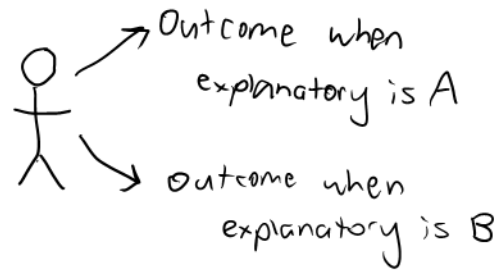 Outcome when
explanatory is A
Outcome when
explanatory is B